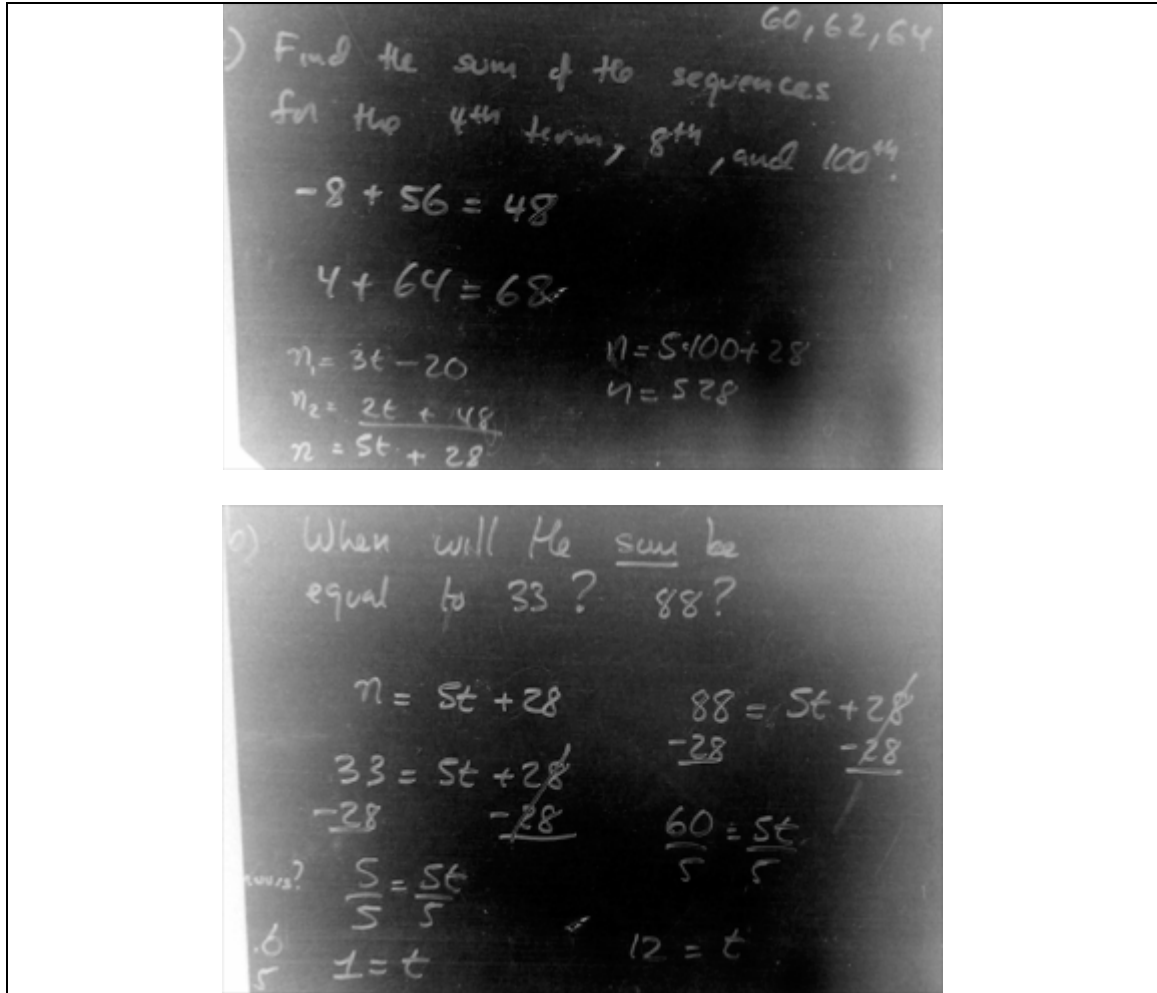 60, 62, 64
) Find the sum of the sequences
for the 4th term, 8th, and 100th.
-8 + 56 = 48
4 + 64 = 68
n₁ = 3t - 20
n₂ = 2t + 48
n = 5t + 28
n = 5·100 + 28
n = 528
b) When will the sum be
equal to 33? 88?
n = 5t + 28
33 = 5t + 28
-28 -28
5/5 = 5t/5
1 = t
88 = 5t + 28
-28 -28
60/5 = 5t/5
12 = t
.6
5